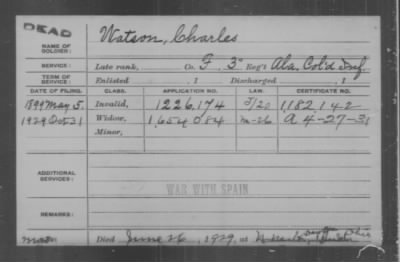 DEAD
NAME OF SOLDIER: Watson, Charles
SERVICE: Late rank, Co. F. 3" Reg't Ala. Col'd Inf.
TERM OF SERVICE: Enlisted , 1 Discharged , 1
DATE OF FILING. CLASS. APPLICATION NO. LAW. CERTIFICATE NO.
1899 May 5. Invalid, 1226,174 1182142
1929 Oct 31 Widow, 1,654,084 m-26 A 4-27-31
Minor,
ADDITIONAL SERVICES:
WAR WITH SPAIN
REMARKS:
Died June 26, 1929, at Dayton Ohio